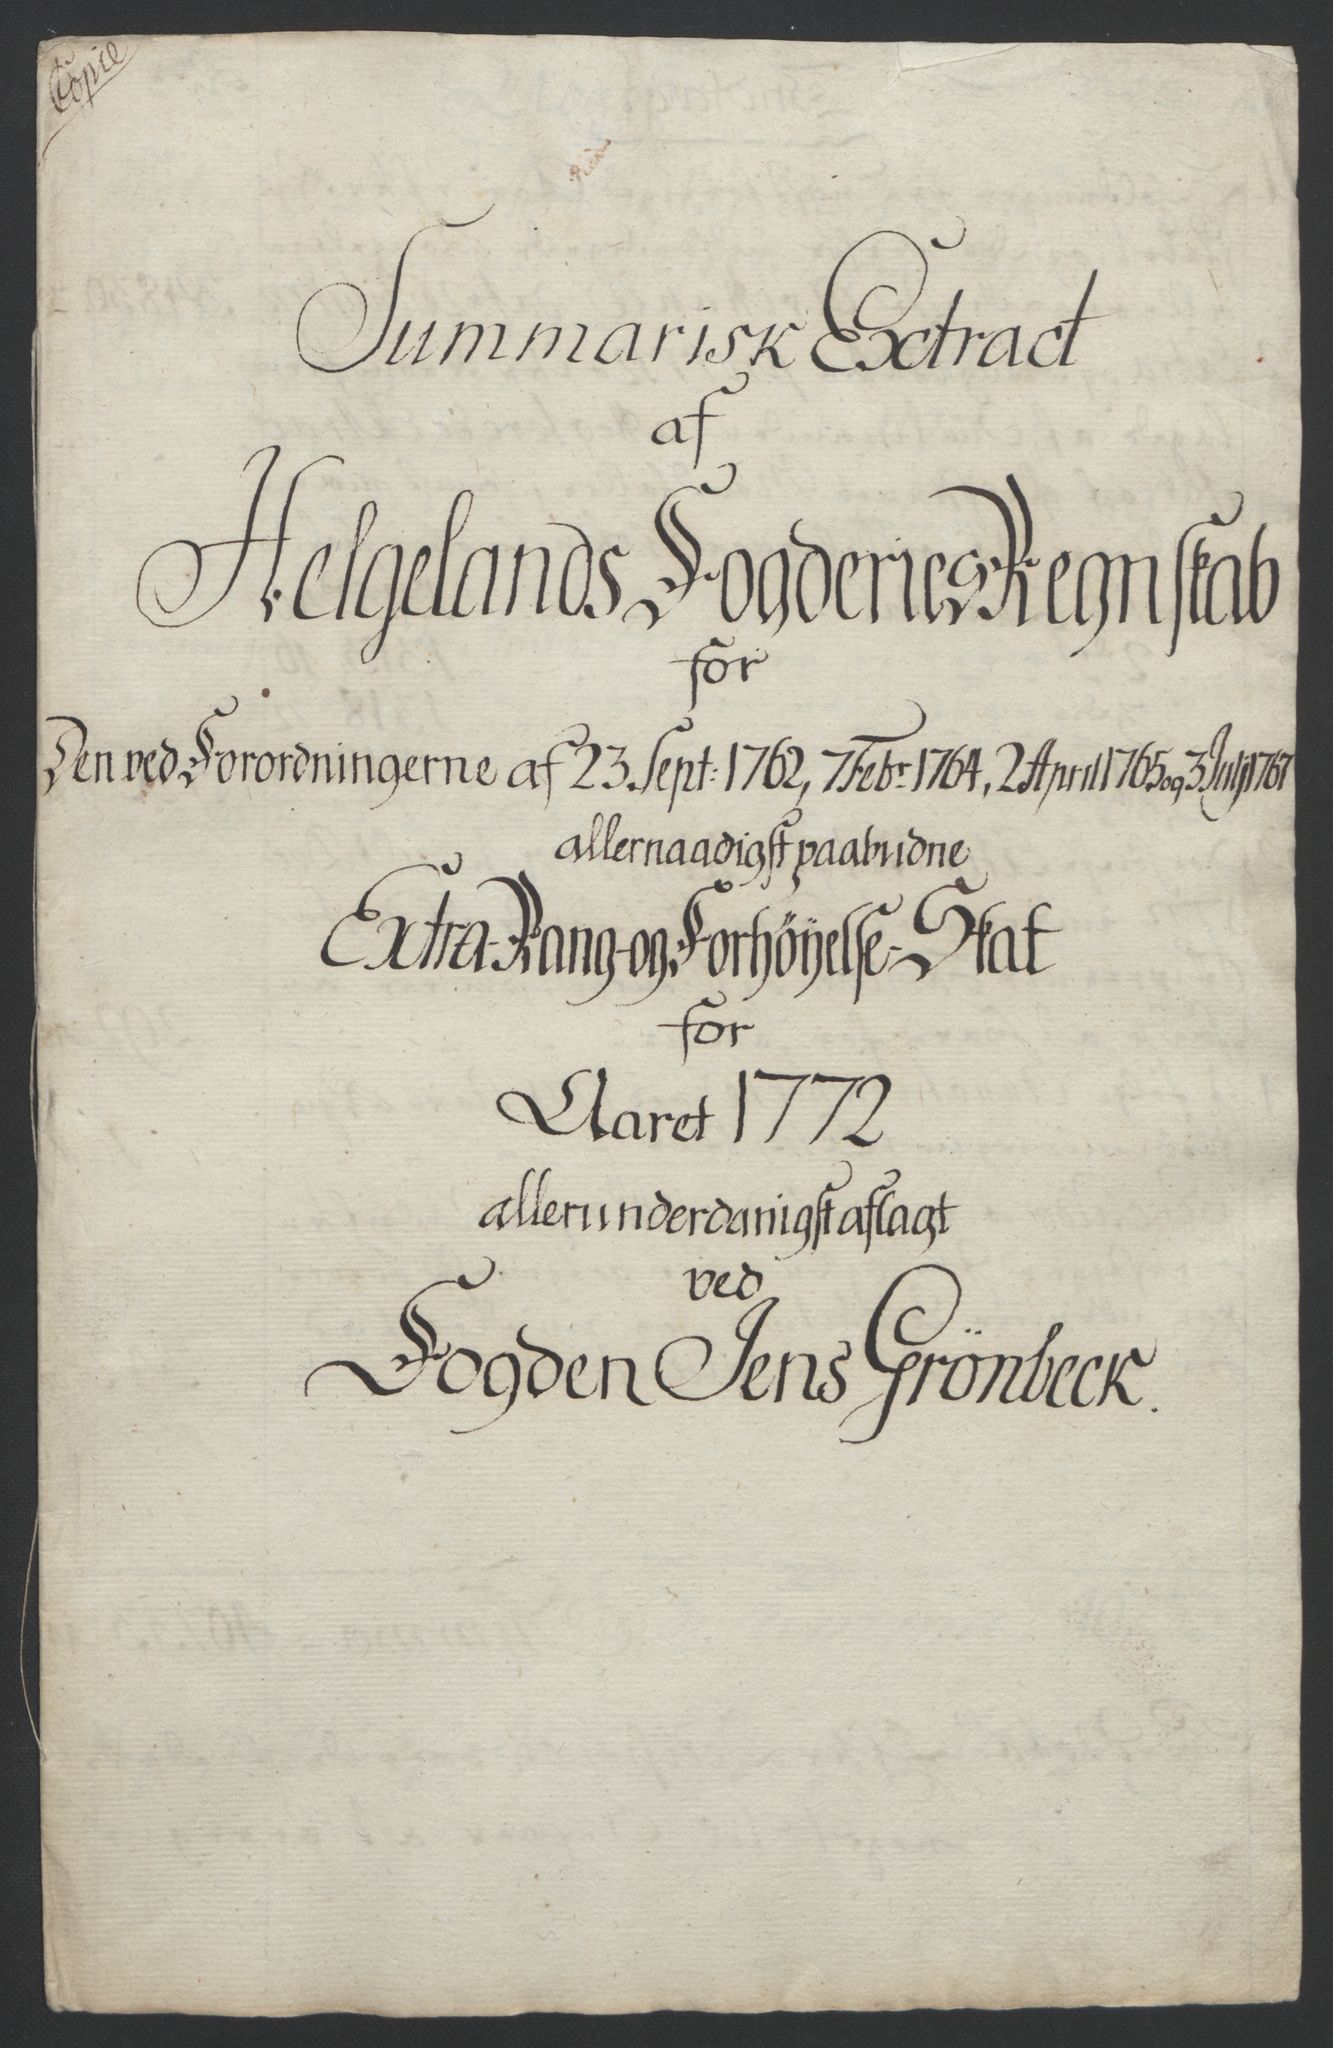 Copie
Summarisk Extract
af
Helgelands Fogderies Regnskab
for
Den ved Forordningerne af 23 Sept: 1762, 7 Febr 1764, 2 April 1765 og 3 July 1767
allernaadigst paabudne
Extra-Rang-og Forhöyelse-Skat
for
Aaret 1772
allerunderdanigst aflagt
ved
Fogden Jens Grönbeck.